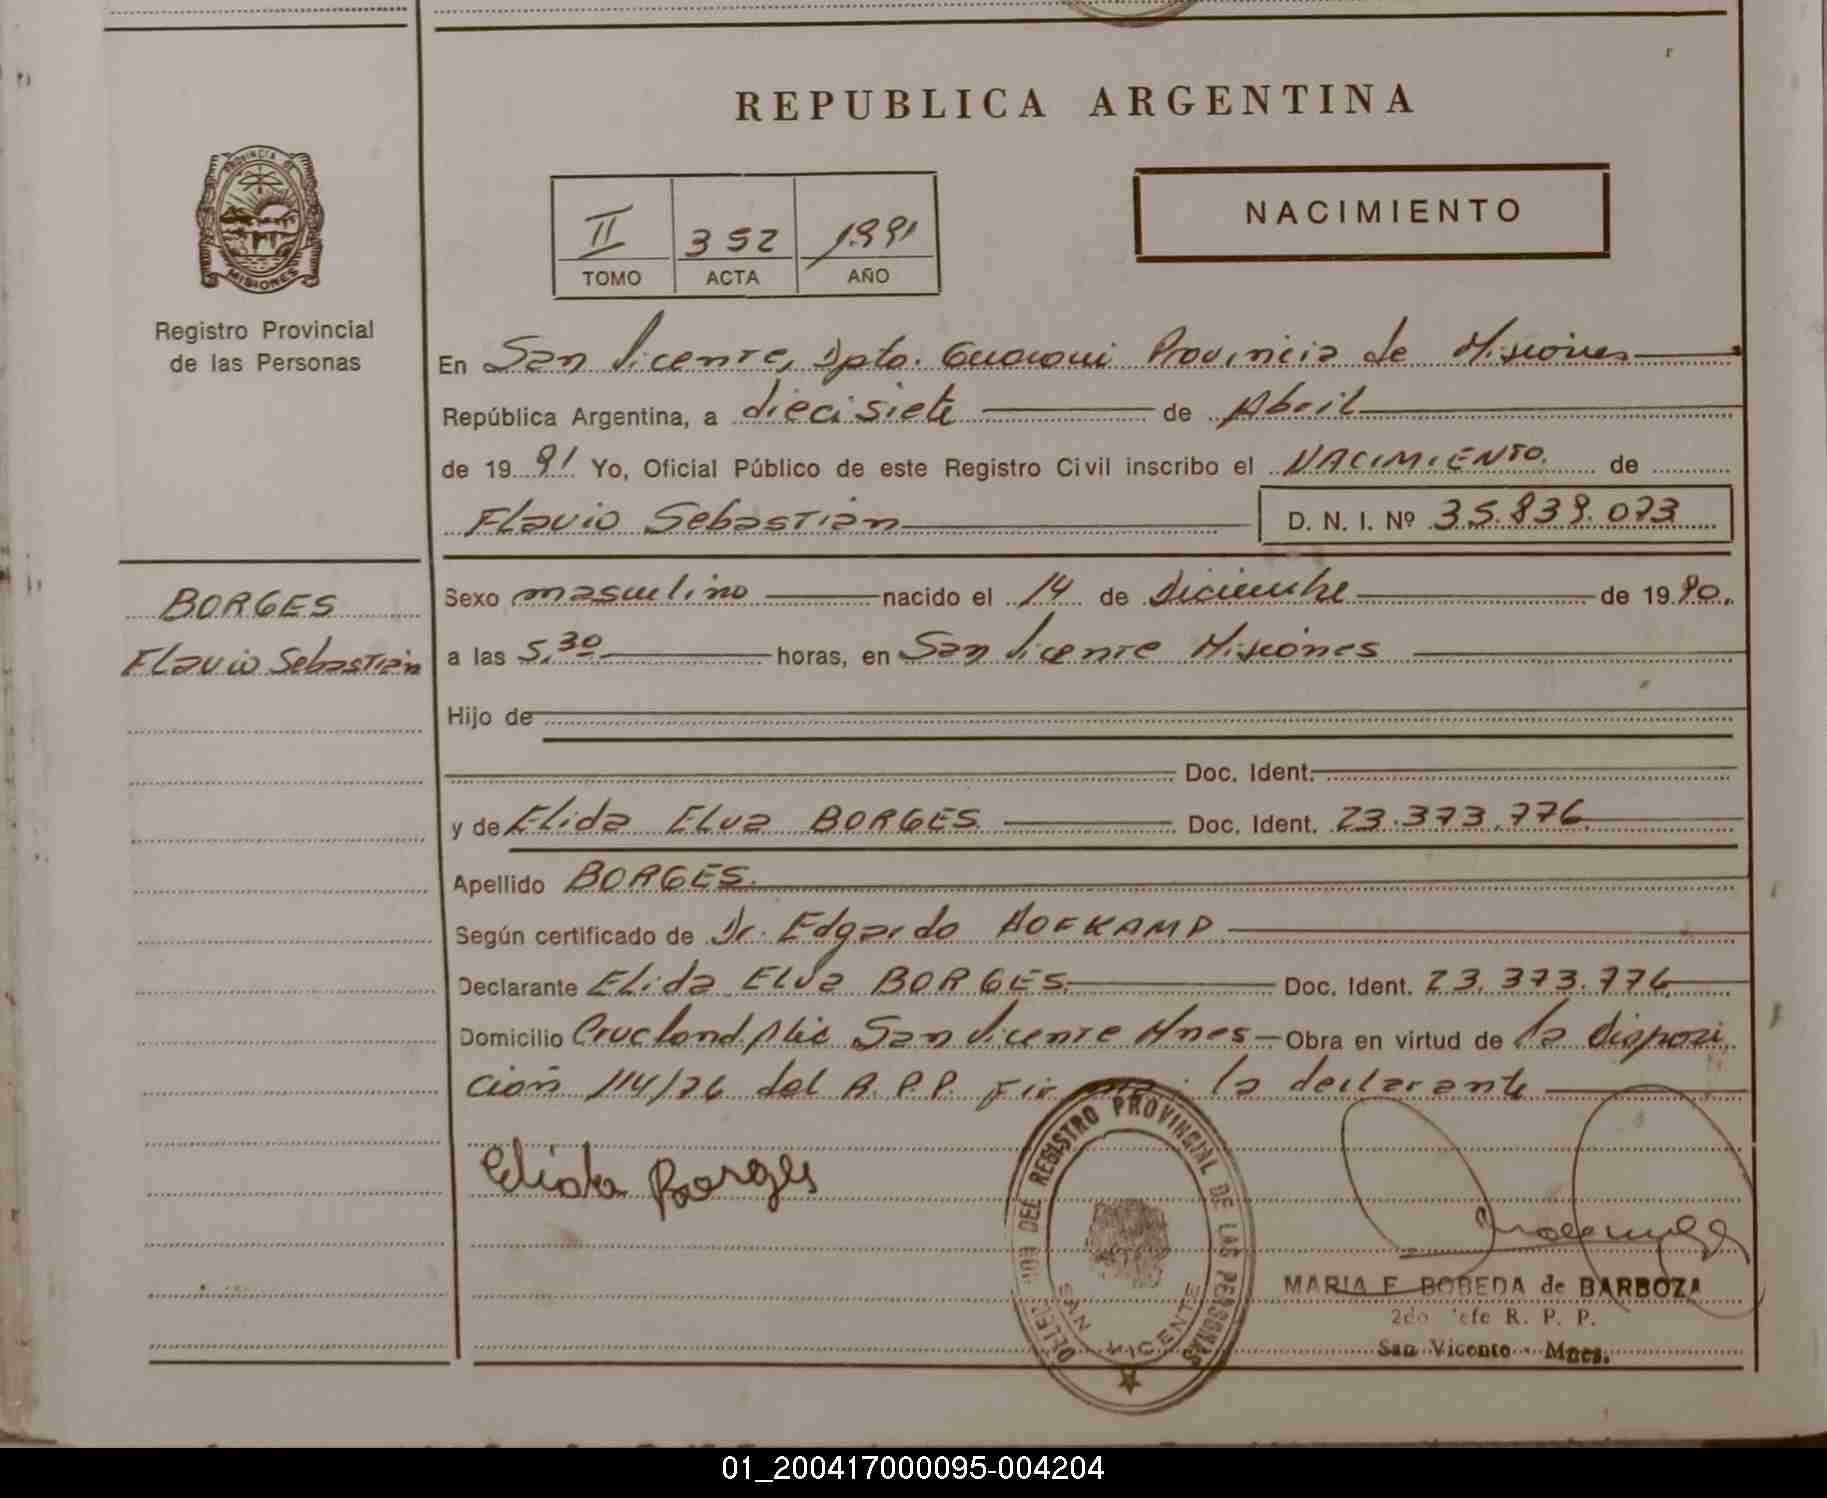 REPUBLICA ARGENTINA
PROVINCIA DE
MISIONES
Registro Provincial
de las Personas
NACIMIENTO
II 352 1991
TOMO ACTA AÑO
En San Vicente, Dpto. Guarani Provincia de Misiones
República Argentina, a diecisiete de Abril
de 1991 Yo, Oficial Público de este Registro Civil inscribo el NACIMIENTO. de
Flavio Sebastián D. N. I. Nº 35.839.073
BORGES
Flavio Sebastián
Sexo masculino nacido el 14 de Diciembre de 1990.
a las 5,30 horas, en San Vicente Misiones
Hijo de
Doc. Ident.
y de Elida Elva BORGES Doc. Ident. 23.373.776
Apellido BORGES.
Según certificado de Dr. Edgardo HOFKAMP
Declarante Elida Elva BORGES. Doc. Ident. 23.373.776
Domicilio San Vicente Mnes- Obra en virtud de la disposi
ción 114/76 del R.P.P. Firma: la declarante
Elida Borges
DEL REGISTRO PROVINCIAL DE LAS PERSONAS
SAN VICENTE
MARIA E BOBEDA de BARBOZA
2do Jefe R. P. P.
San Vicente - Mnes.
01_200417000095-004204